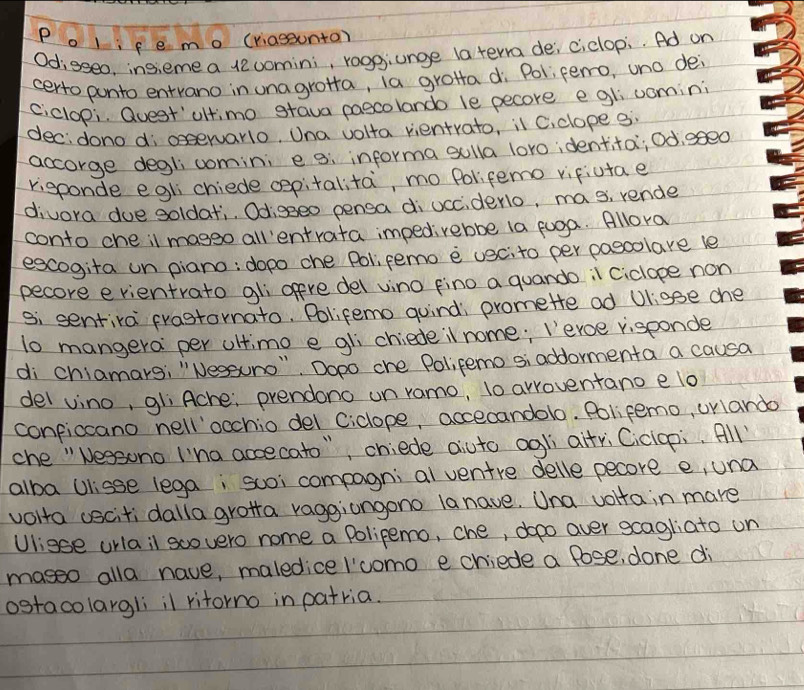 POLIFEMO
Polifemo (riassunto)
Odisseo, insieme a 12 uomini, raggiunge la terra dei ciclopi. Ad un
certo punto entrano in una grotta, la grotta di Polifemo, uno dei
ciclopi. Quest'ultimo stava pascolando le pecore e gli uomini
decidono di osservarlo. Una volta rientrato, il Ciclope si
accorge degli uomini e si informa sulla loro identità; Odisseo
risponde e gli chiede ospitalità, ma Polifemo rifiuta e
divora due soldati. Odisseo pensa di ucciderlo, ma si rende
conto che il masso all'entrata impedirebbe la fuga. Allora
escogita un piano: dopo che Polifemo è uscito per pascolare le
pecore e rientrato gli offre del vino fino a quando il ciclope non
si sentirà frastornato. Polifemo quindi promette ad Ulisse che
lo mangerà per ultimo e gli chiede il nome; l'eroe risponde
di chiamarsi "Nessuno". Dopo che Polifemo si addormenta a causa
del vino, gli Achei prendono un ramo, lo arroventano e lo
conficcano nell'occhio del Ciclope, accecandolo. Polifemo, urlando
che "Nessuno l'ha accecato", chiede aiuto agli altri Ciclopi. All'
alba Ulisse lega i suoi compagni al ventre delle pecore e, una
volta usciti dalla grotta raggiungono la nave. Una volta in mare
Ulisse urla il suo vero nome a Polifemo, che, dopo aver scagliato un
masso alla nave, maledice l'uomo e chiede a Poseidone di
ostacolargli il ritorno in patria.